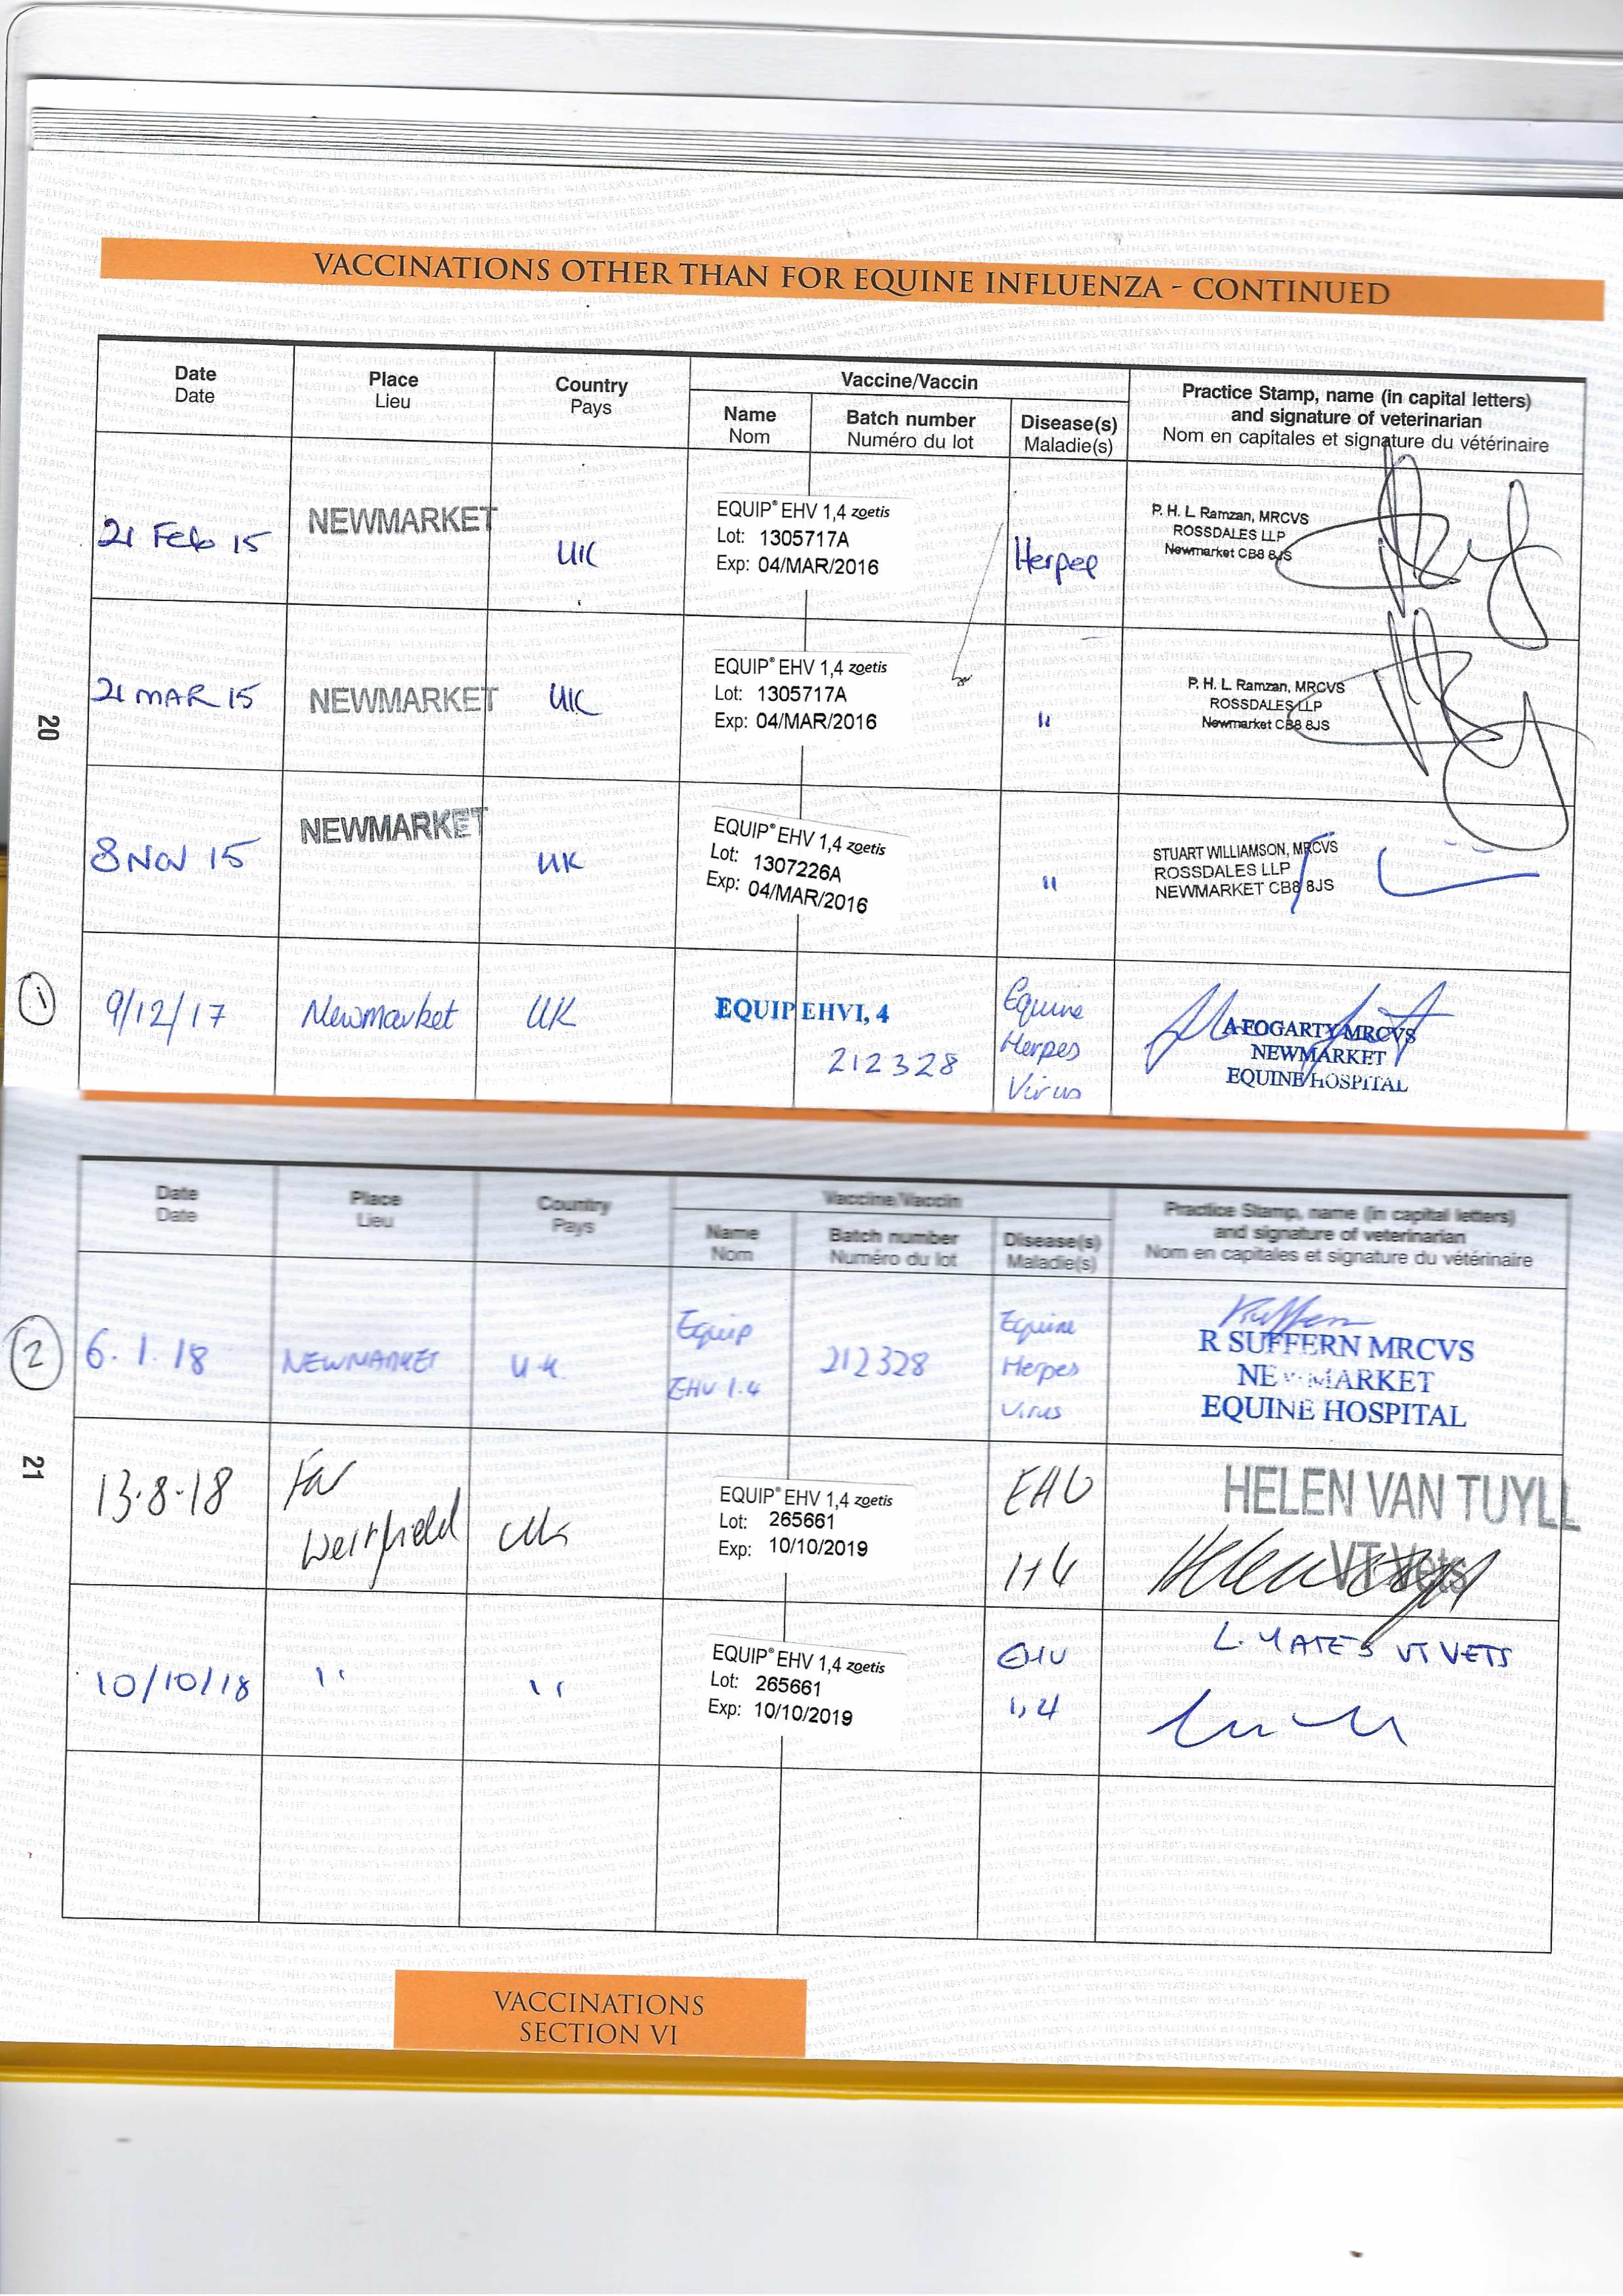 VACCINATIONS OTHER THAN FOR EQUINE INFLUENZA - CONTINUED
Date
Date
Place
Lieu
Country
Pays
Vaccine/Vaccin
Name
Nom
Batch number
Numéro du lot
Disease(s)
Maladie(s)
Practice Stamp, name (in capital letters)
and signature of veterinarian
Nom en capitales et signature du vétérinaire
21 Feb 15
NEWMARKET
UK
EQUIP® EHV 1,4 zoetis
Lot: 1305717A
Exp: 04/MAR/2016
Herpes
P. H. L. Ramzan, MRCVS
ROSSDALES LLP
Newmarket CB8 8JS
21 MAR 15
NEWMARKET
UK
EQUIP® EHV 1,4 zoetis
Lot: 1305717A
Exp: 04/MAR/2016
"
P. H. L. Ramzan, MRCVS
ROSSDALES LLP
Newmarket CB8 8JS
20
8 NOV 15
NEWMARKET
UK
EQUIP® EHV 1,4 zoetis
Lot: 1307226A
Exp: 04/MAR/2016
"
STUART WILLIAMSON, MRCVS
ROSSDALES LLP
NEWMARKET CB8 8JS
1
9/12/17
Newmarket
UK
EQUIP EHV1, 4
212328
Equine
Herpes
Virus
A FOGARTY MRCVS
NEWMARKET
EQUINE HOSPITAL
Date
Date
Place
Lieu
Country
Pays
Vaccine/Vaccin
Name
Nom
Batch number
Numéro du lot
Disease(s)
Maladie(s)
Practice Stamp, name (in capital letters)
and signature of veterinarian
Nom en capitales et signature du vétérinaire
2
6.1.18
NEWMARKET
UK
Equip
EHV 1.4
212328
Equine
Herpes
Virus
R SUFFERN MRCVS
NEWMARKET
EQUINE HOSPITAL
21
13.8.18
Far
Westfield
UK
EQUIP® EHV 1,4 zoetis
Lot: 265661
Exp: 10/10/2019
EHV
1+4
HELEN VAN TUYLL
VT Vets
10/10/18
"
"
EQUIP® EHV 1,4 zoetis
Lot: 265661
Exp: 10/10/2019
EHV
1,4
L. YATES VT VETS
VACCINATIONS
SECTION VI